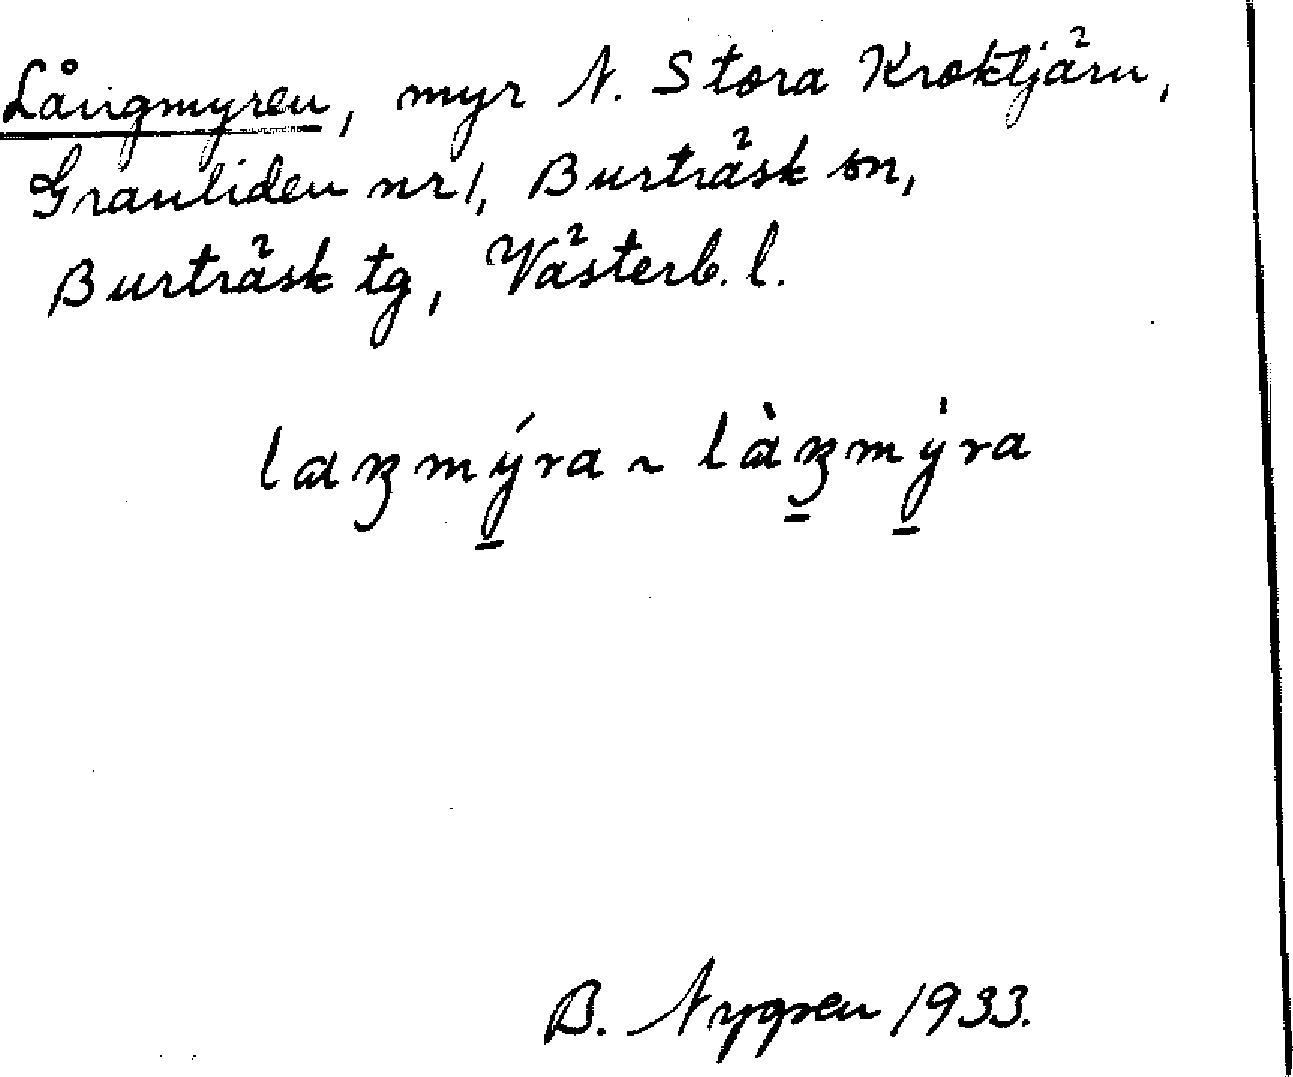 Långmyren, myr N. Stora Kroktjärn,
Granliden nr 1, Burträsk sn,
Burträsk tg, Västerb. l.
laŋmýra ~ làŋmýra
B. Nygren 1933.